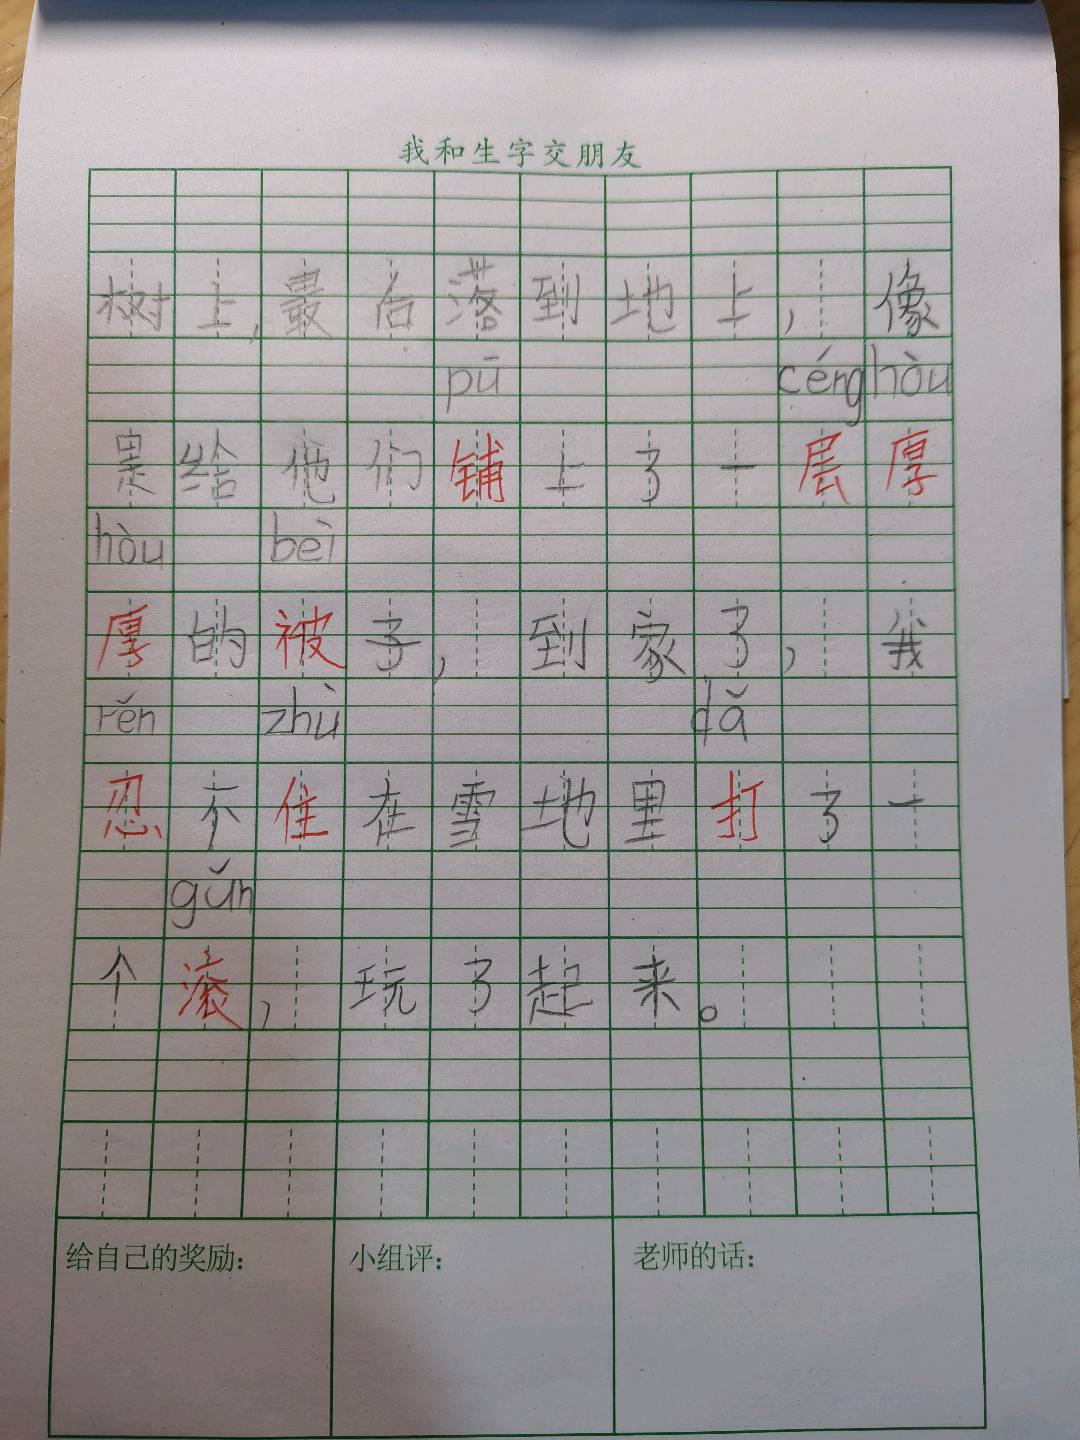 我和生字交朋友
树上,最后落到地上,像
pū céng hòu
是给他们铺上了一层厚
hòu bèi
厚的被子,到家了,我
rěn zhù dǎ
忍不住在雪地里打了一
gǔn
个滚,玩了起来。
给自己的奖励: 小组评: 老师的话: